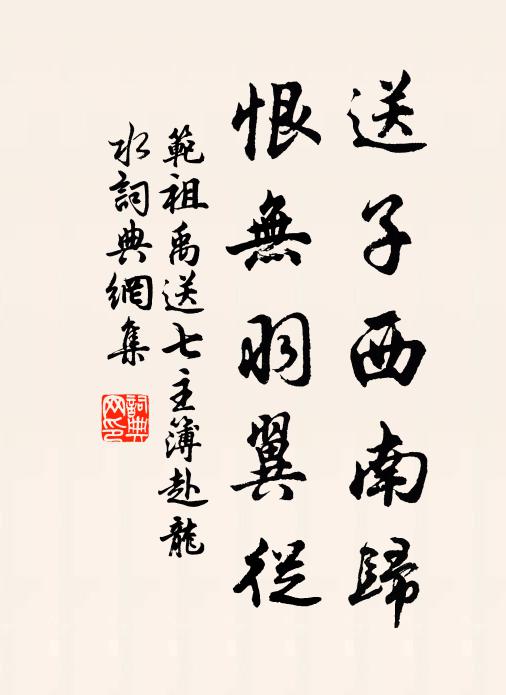 送子西南歸
恨無羽翼從
範祖禹送七主簿赴龍
水詞典網集
詞典
网印